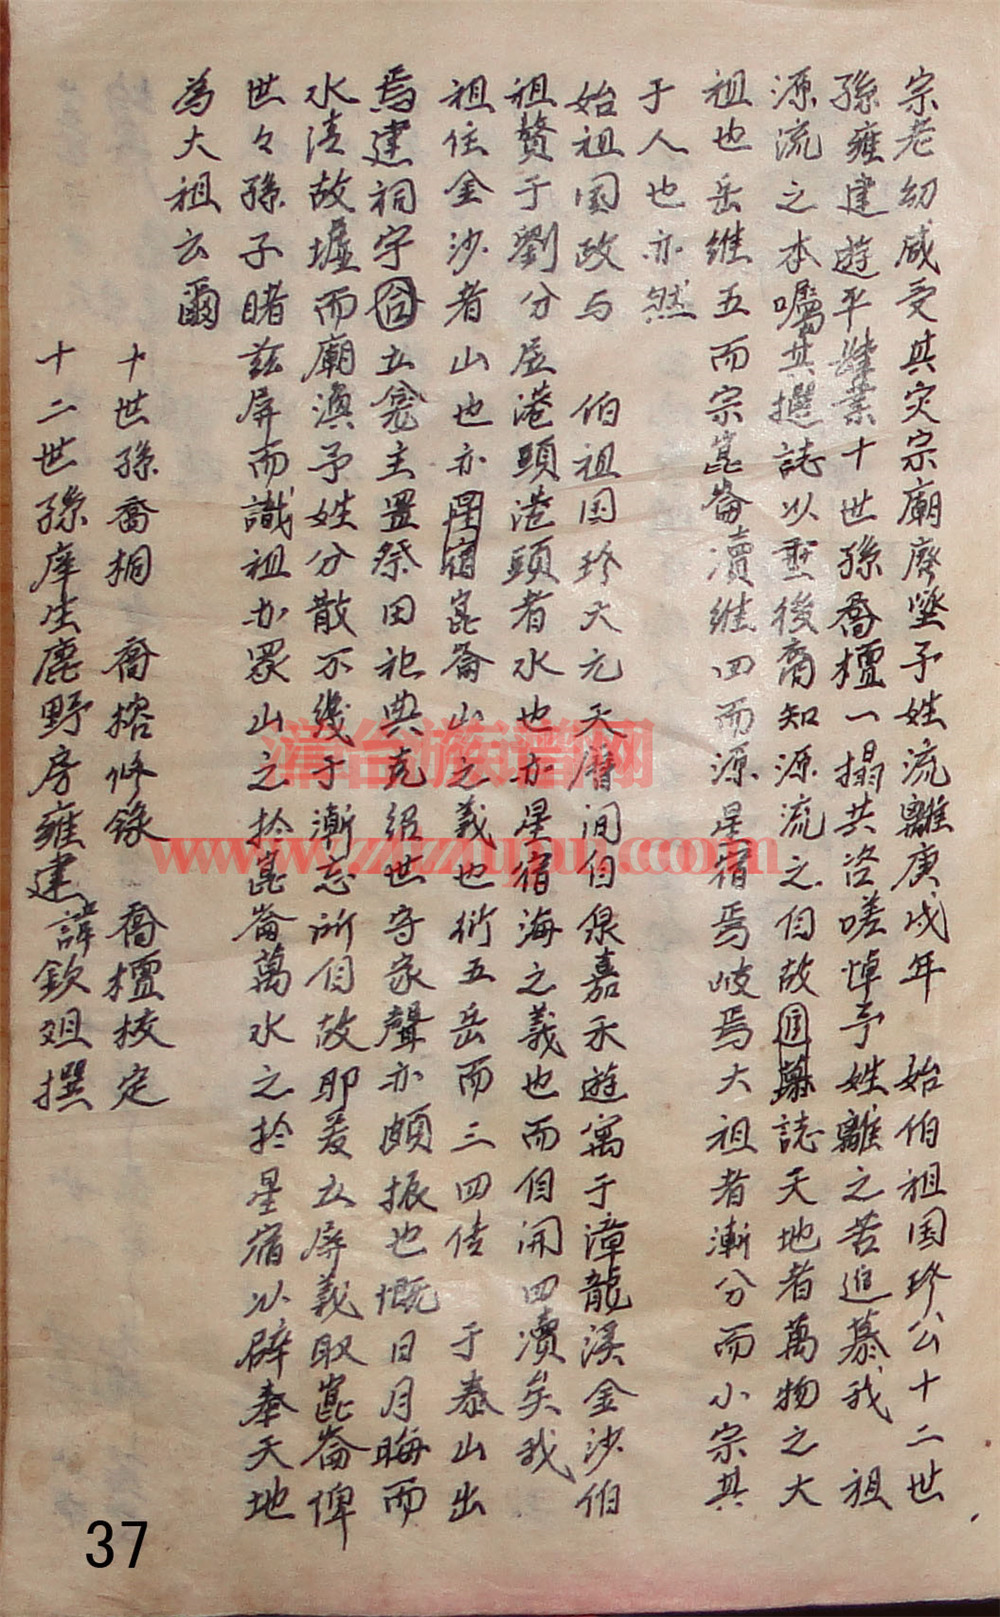 宗老幼咸受其灾宗廟廢墜予姓流離庚戌年　始伯祖国珍公十二世
孫雍建遊平肄業十世孫喬檀一搨共咨嗟悼予姓離之苦追慕我　祖
源流之本囑其撰誌以垂後裔知源流之自故誌天地者萬物之大
祖也岳維五而宗崑崙瀆維四而源星宿焉岐焉大祖者漸分而小宗其
于人也亦然
始祖国政与　伯祖国珍大元天曆间自泉嘉禾遊寓于漳龍溪金沙伯
祖贅于劉分居港頭港頭者水也亦星宿海之義也而自开四瀆矣我
祖住金沙者山也亦星宿崑崙山之義也衍五岳而三四传　于泰山出
焉建祠宇台立龛主置祭田祀典克绍世守家聲亦頗振也慨日月晦而
水清故墟而廟渙予姓分散不幾于漸忘所自故耶爰立屏義取崑崙俾
世々孫子睹兹屏而識祖亦眾山之於崑崙萬水之於星宿以辟奉天地
為大祖云爾
十世孫喬桐　喬榕修錄　喬檀挍定
十二世孫庠生鹿野房雍建諱欽姐撰
漳台族谱网
www.ztzupu.com
37